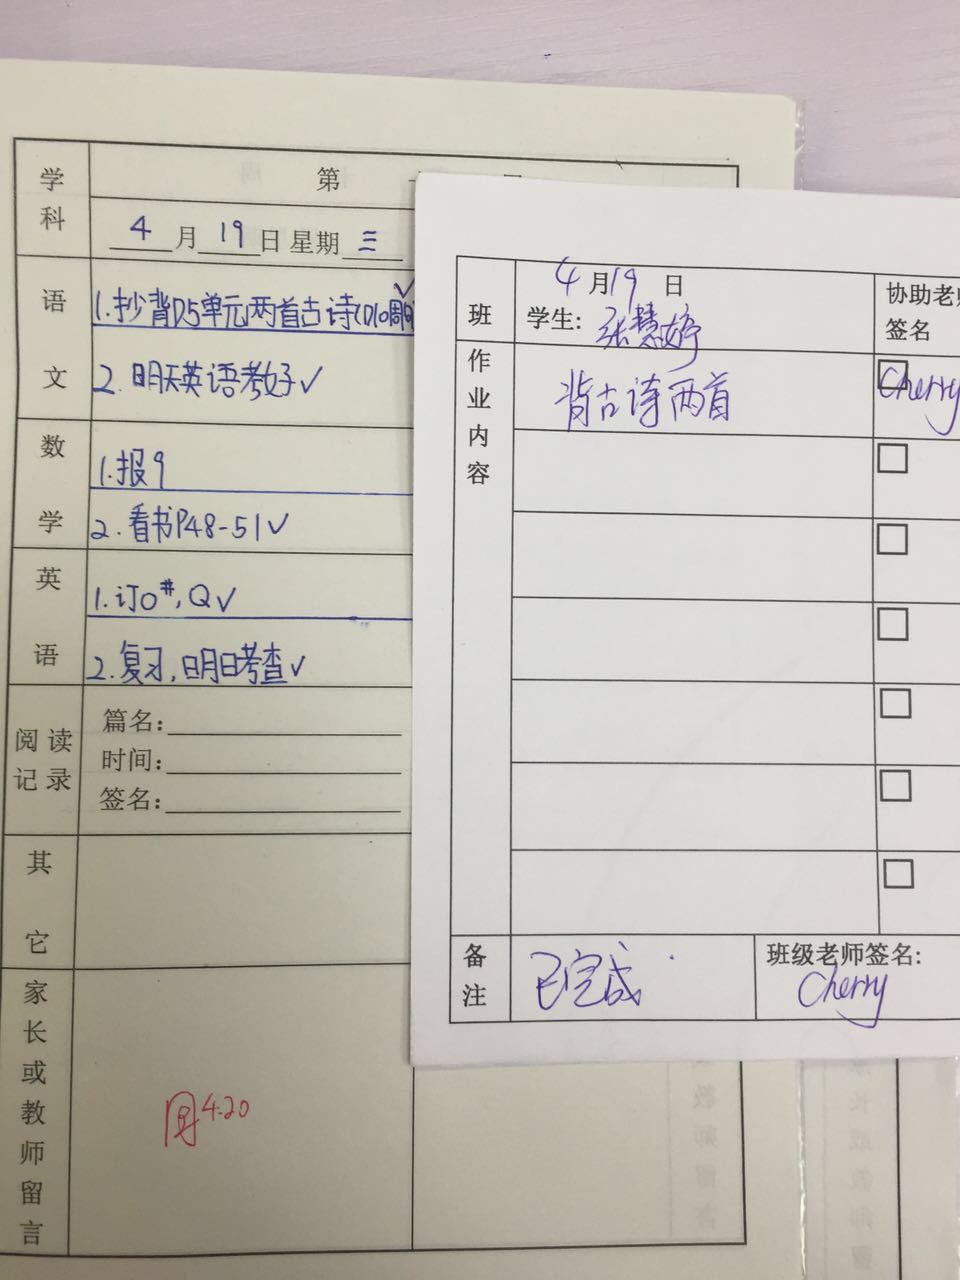 学科
第
4月19日 星期三
语文
1.抄背D5单元两首古诗(D10周
2.明天英语考好✓
数学
1.报9
2.看书P48-51✓
英语
1.订0#,Q✓
2.复习,明日考查✓
阅读记录
篇名:
时间:
签名:
其它
家长或教师留言
4.20
班
4月19日
学生:张慧婷
协助老师
签名
作业内容
背古诗两首
Cherry
备注
已完成
班级老师签名:
Cherry